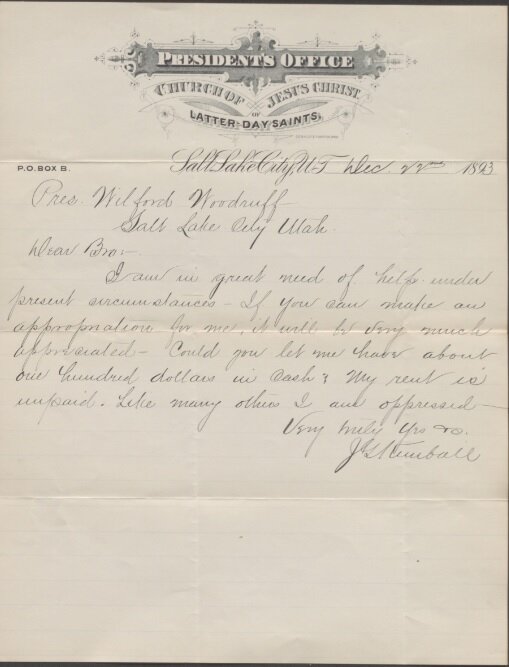 PRESIDENT'S OFFICE
CHURCH OF JESUS CHRIST
OF
LATTER-DAY SAINTS,
P.O. BOX B. Salt Lake City, U.T. Dec 22nd 1893
Pres. Wilford Woodruff
Salt Lake City Utah.
Dear Bro:-
I am in great need of help under
present circumstances - If you can make an
appropriation for me, it will be very much
appreciated - Could you let me have about
one hundred dollars in cash? My rent is
unpaid. Like many others I am oppressed -
Very truly Yrs &c.
J Kimball